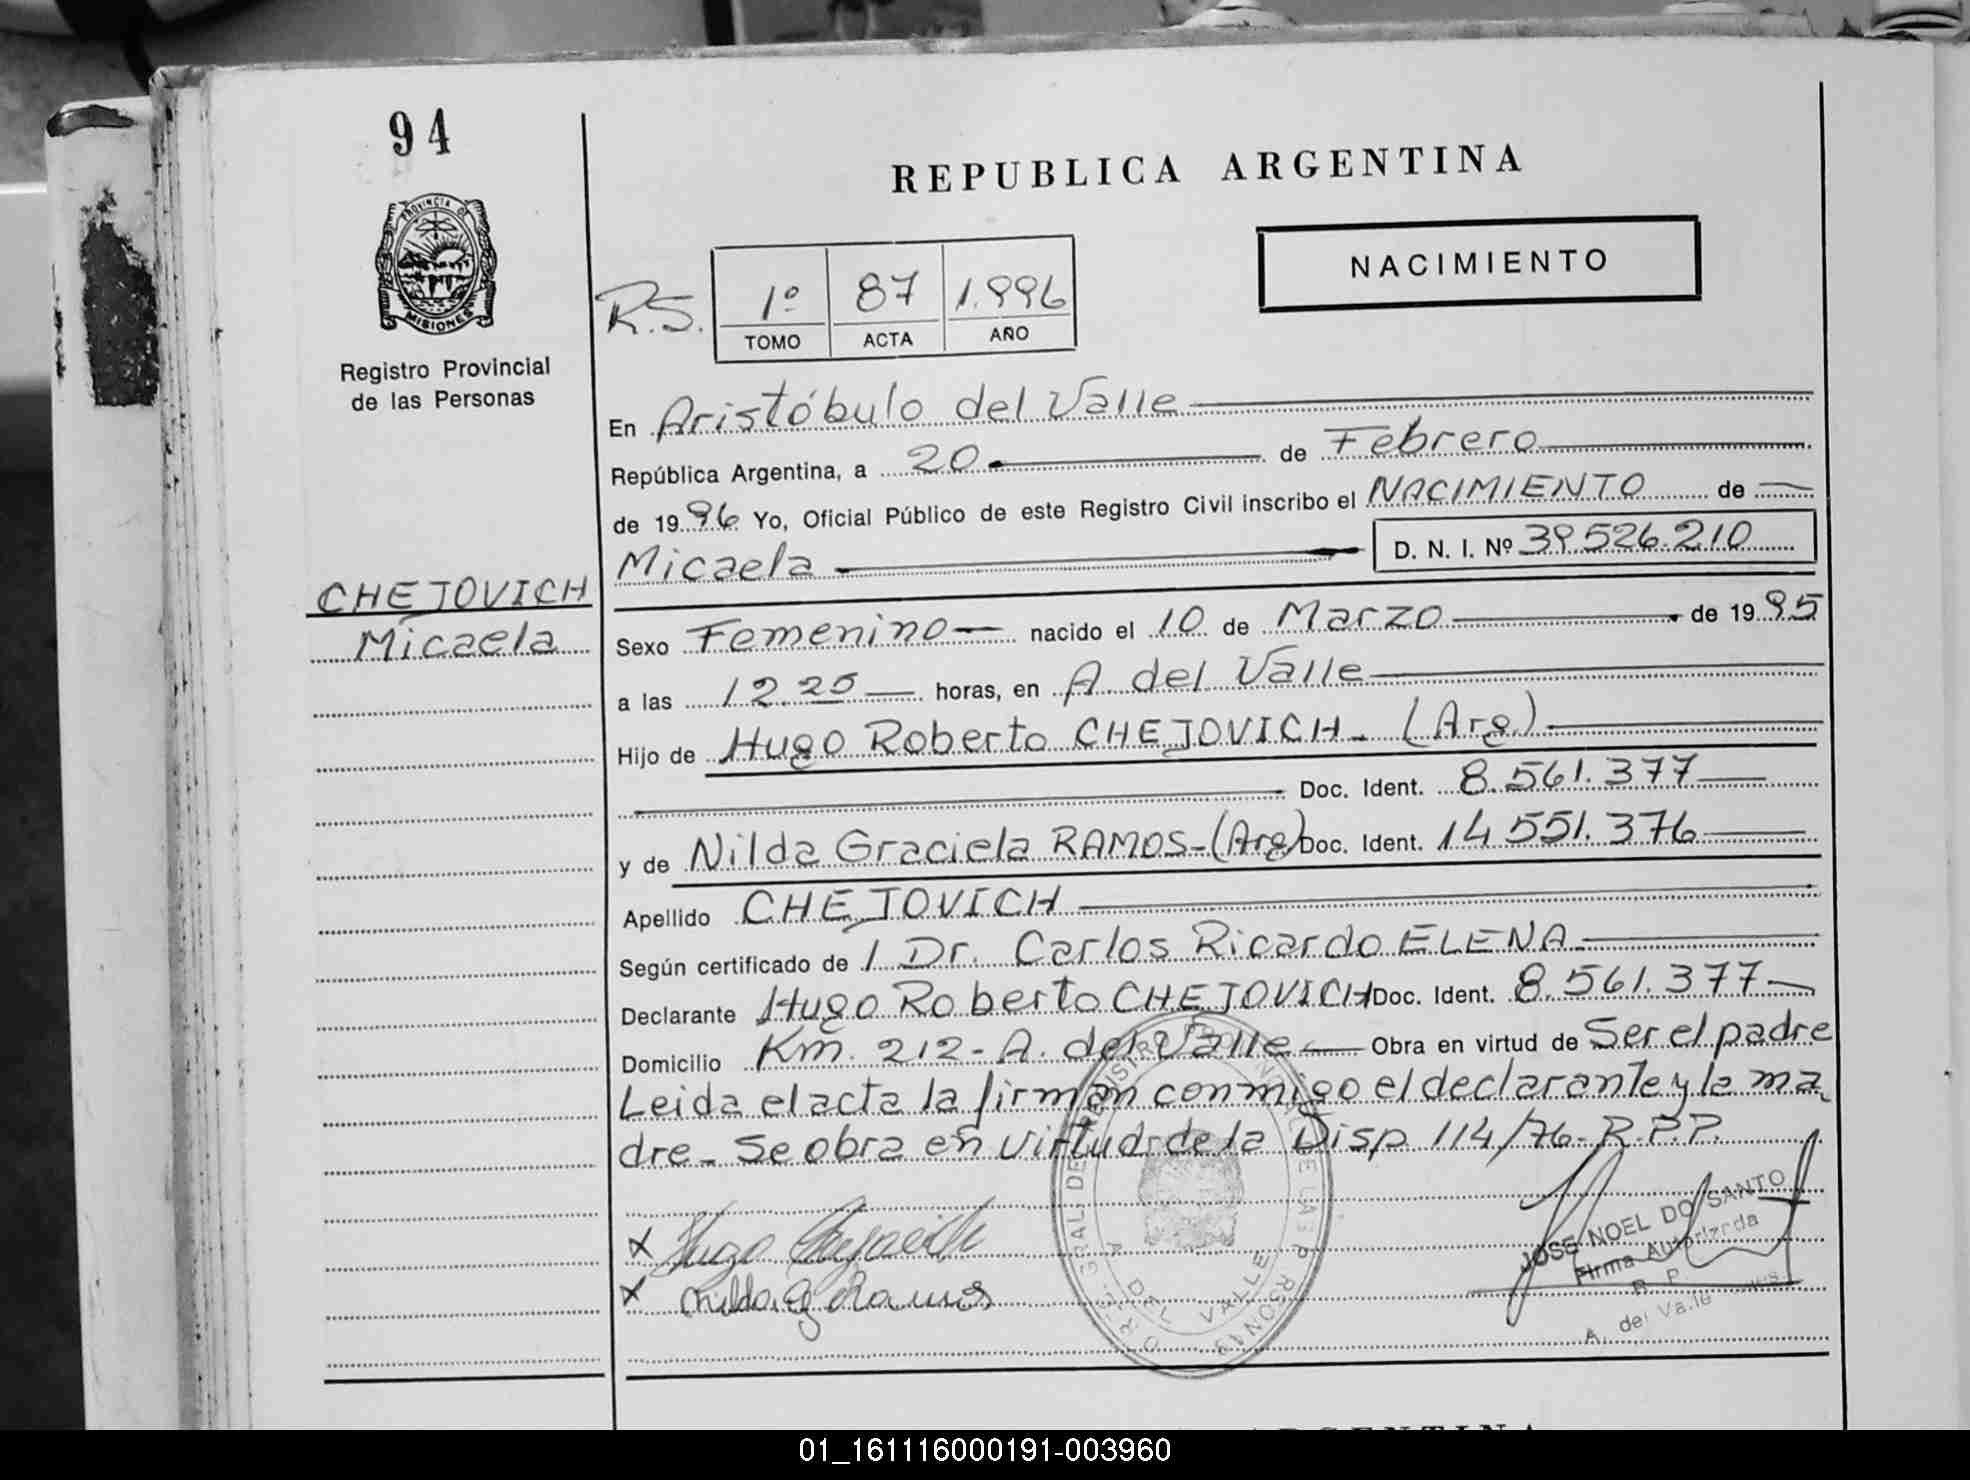 94
REPUBLICA ARGENTINA
PROVINCIA DE
MISIONES
NACIMIENTO
R.S.
1º 87 1.996
TOMO ACTA AÑO
Registro Provincial
de las Personas
En Aristóbulo del Valle
República Argentina, a 20 de Febrero
de 1996 Yo, Oficial Público de este Registro Civil inscribo el NACIMIENTO de
Micaela D. N. I. Nº 39.526.210
CHEJOVICH
Micaela
Sexo Femenino nacido el 10 de Marzo de 1995
a las 12.25 horas, en A. del Valle
Hijo de Hugo Roberto CHEJOVICH - (Arg)
Doc. Ident. 8.561.377
y de Nilda Graciela RAMOS - (Arg) Doc. Ident. 14.551.376
Apellido CHEJOVICH
Según certificado de / Dr. Carlos Ricardo ELENA
Declarante Hugo Roberto CHEJOVICH Doc. Ident. 8.561.377
Domicilio Km. 212 - A. del Valle Obra en virtud de Ser el padre
Leida el acta la firman conmigo el declarante y la ma
dre - Se obra en virtud de la Disp 114/76 - R.P.P.
x Hugo
x Nilda G Ramos
JOSE NOEL DO SANTO
Firma Autorizada
R. P.
A. del Valle
A. DEL VALLE
01_161116000191-003960